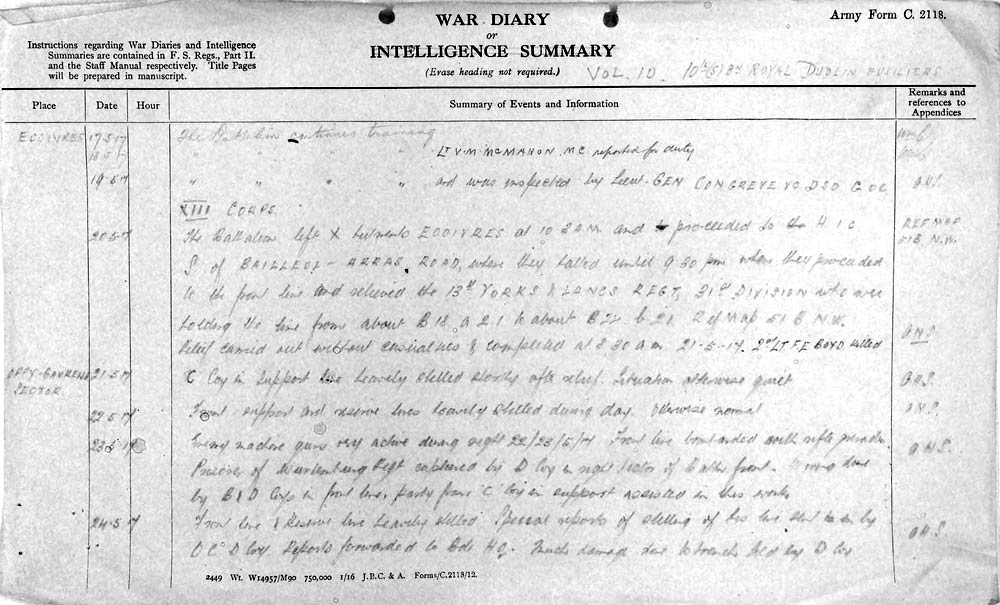 WAR DIARY
or
INTELLIGENCE SUMMARY
(Erase heading not required.)
Army Form C. 2118.
Instructions regarding War Diaries and Intelligence
Summaries are contained in F. S. Regs., Part II.
and the Staff Manual respectively. Title Pages
will be prepared in manuscript.
VOL. 10 10th (S) Bn ROYAL DUBLIN FUSILIERS
Place Date Hour Summary of Events and Information Remarks and references to Appendices
ECOIVRES 17-5-17 The Battalion continues training
18-5-17 " " " " Lt V.M. McMAHON MC reported for duty
19-5-17 " " " " and was inspected by Lieut-GEN CONGREVE VC DSO G OC
XIII CORPS.
20-5-17 The Battalion left ECOIVRES at 10 3 AM and proceeded to H 1 C REF MAP
S of BAILLEUL-ARRAS ROAD, where they halted until 9 30 pm when they proceeded 51B N.W.
to the front line and relieved the 13th YORKS & LANCS REGT, 31st DIVISION who were
holding the line from about B18 a 2.1 to about B24 b 21 Ref Map 51 B N.W.
Relief carried out without casualties & completed at 3.30 am 21-5-17. 2nd LT F E BOYD killed
OPPY-GAVRELLE SECTOR. 21-5-17 C Coy in Support line heavily shelled shortly after relief. Situation otherwise quiet
22-5-17 Front, support and reserve lines heavily shelled during day. Otherwise normal
23-5-17 Enemy machine guns very active during night 22/23/5/17 Front line bombarded with rifle grenades.
Prisoner of Regt captured by D Coy in right sector of Battn front. Wiring done
by B & D Coys in front line, party from "C" Coy in support assisted in this work
24-5-17 Front line & Reserve line heavily shelled Special reports of shelling of his line sent in by
O C D Coy. Reports forwarded to Bde HQ. Much damage done to trench held by D Coy
2449 Wt. W14957/M90 750,000 1/16 J.B.C. & A. Forms/C.2118/12.